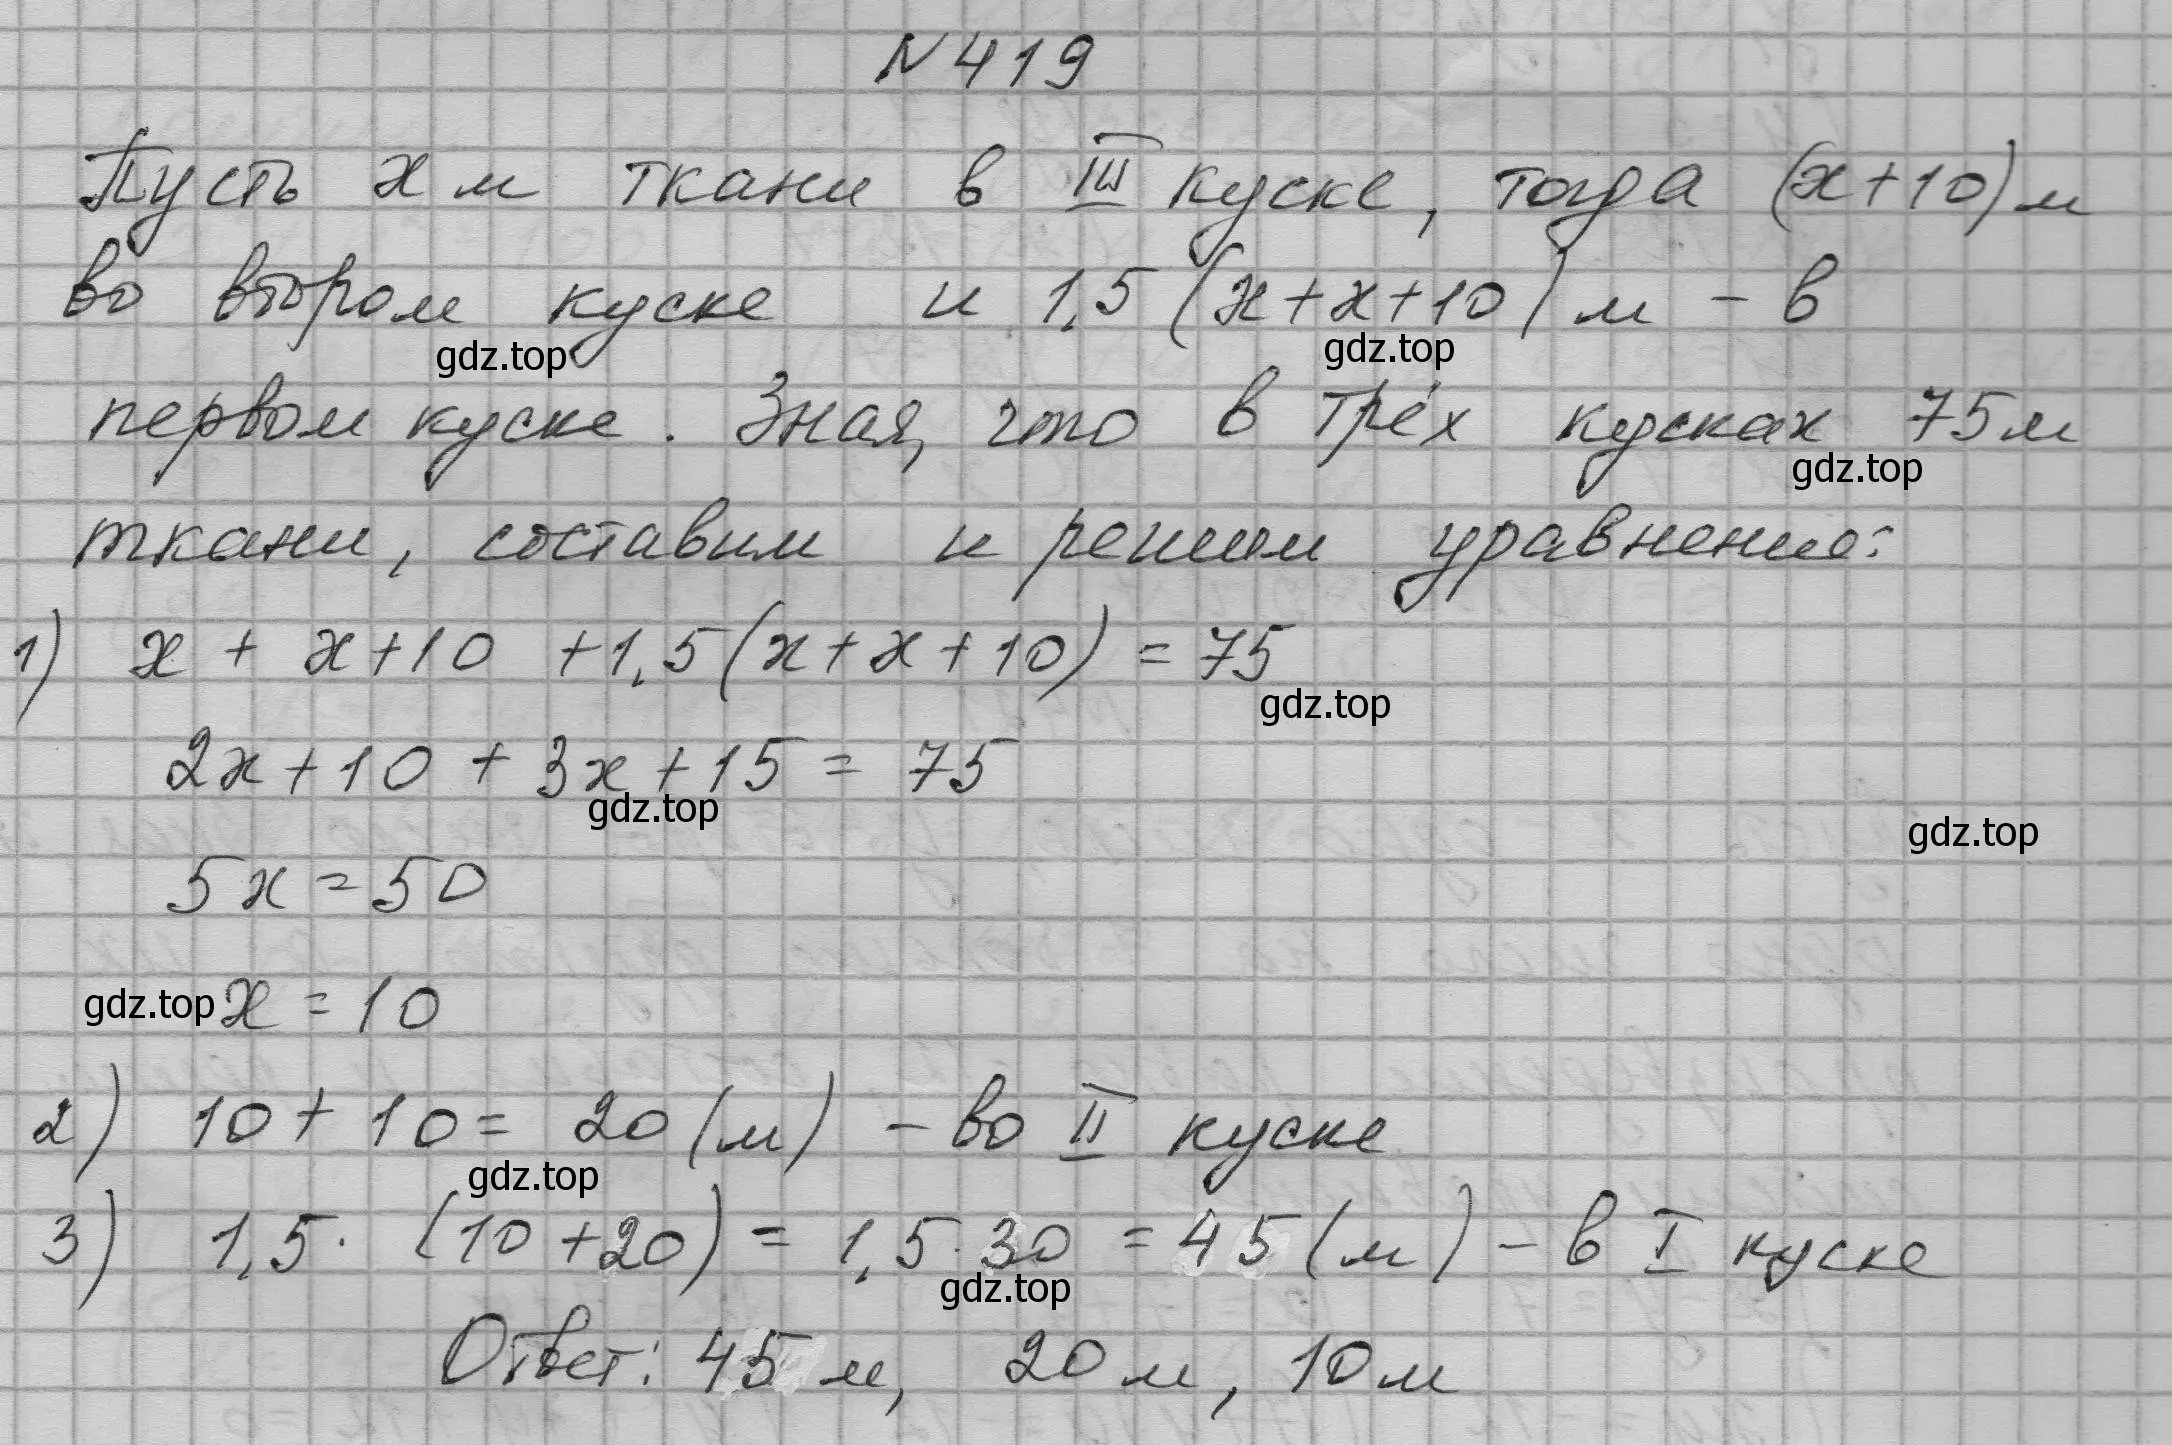 N 419
Пусть x м ткани в III куске, тогда (x+10) м
во втором куске и 1,5 (x+x+10) м - в
gdz.top gdz.top
первом куске. Зная, что в трёх кусках 75 м
gdz.top
ткани, составим и решим уравнение:
1) x + x+10 +1,5(x+x+10) = 75
gdz.top
2x+10 + 3x+15 = 75
gdz.top gdz.top
5x = 50
gdz.top x = 10
2) 10+10 = 20 (м) - во II куске
gdz.top
3) 1,5 · (10+20) = 1,5·30 = 45 (м) - в I куске
gdz.top
Ответ: 45 м, 20 м, 10 м